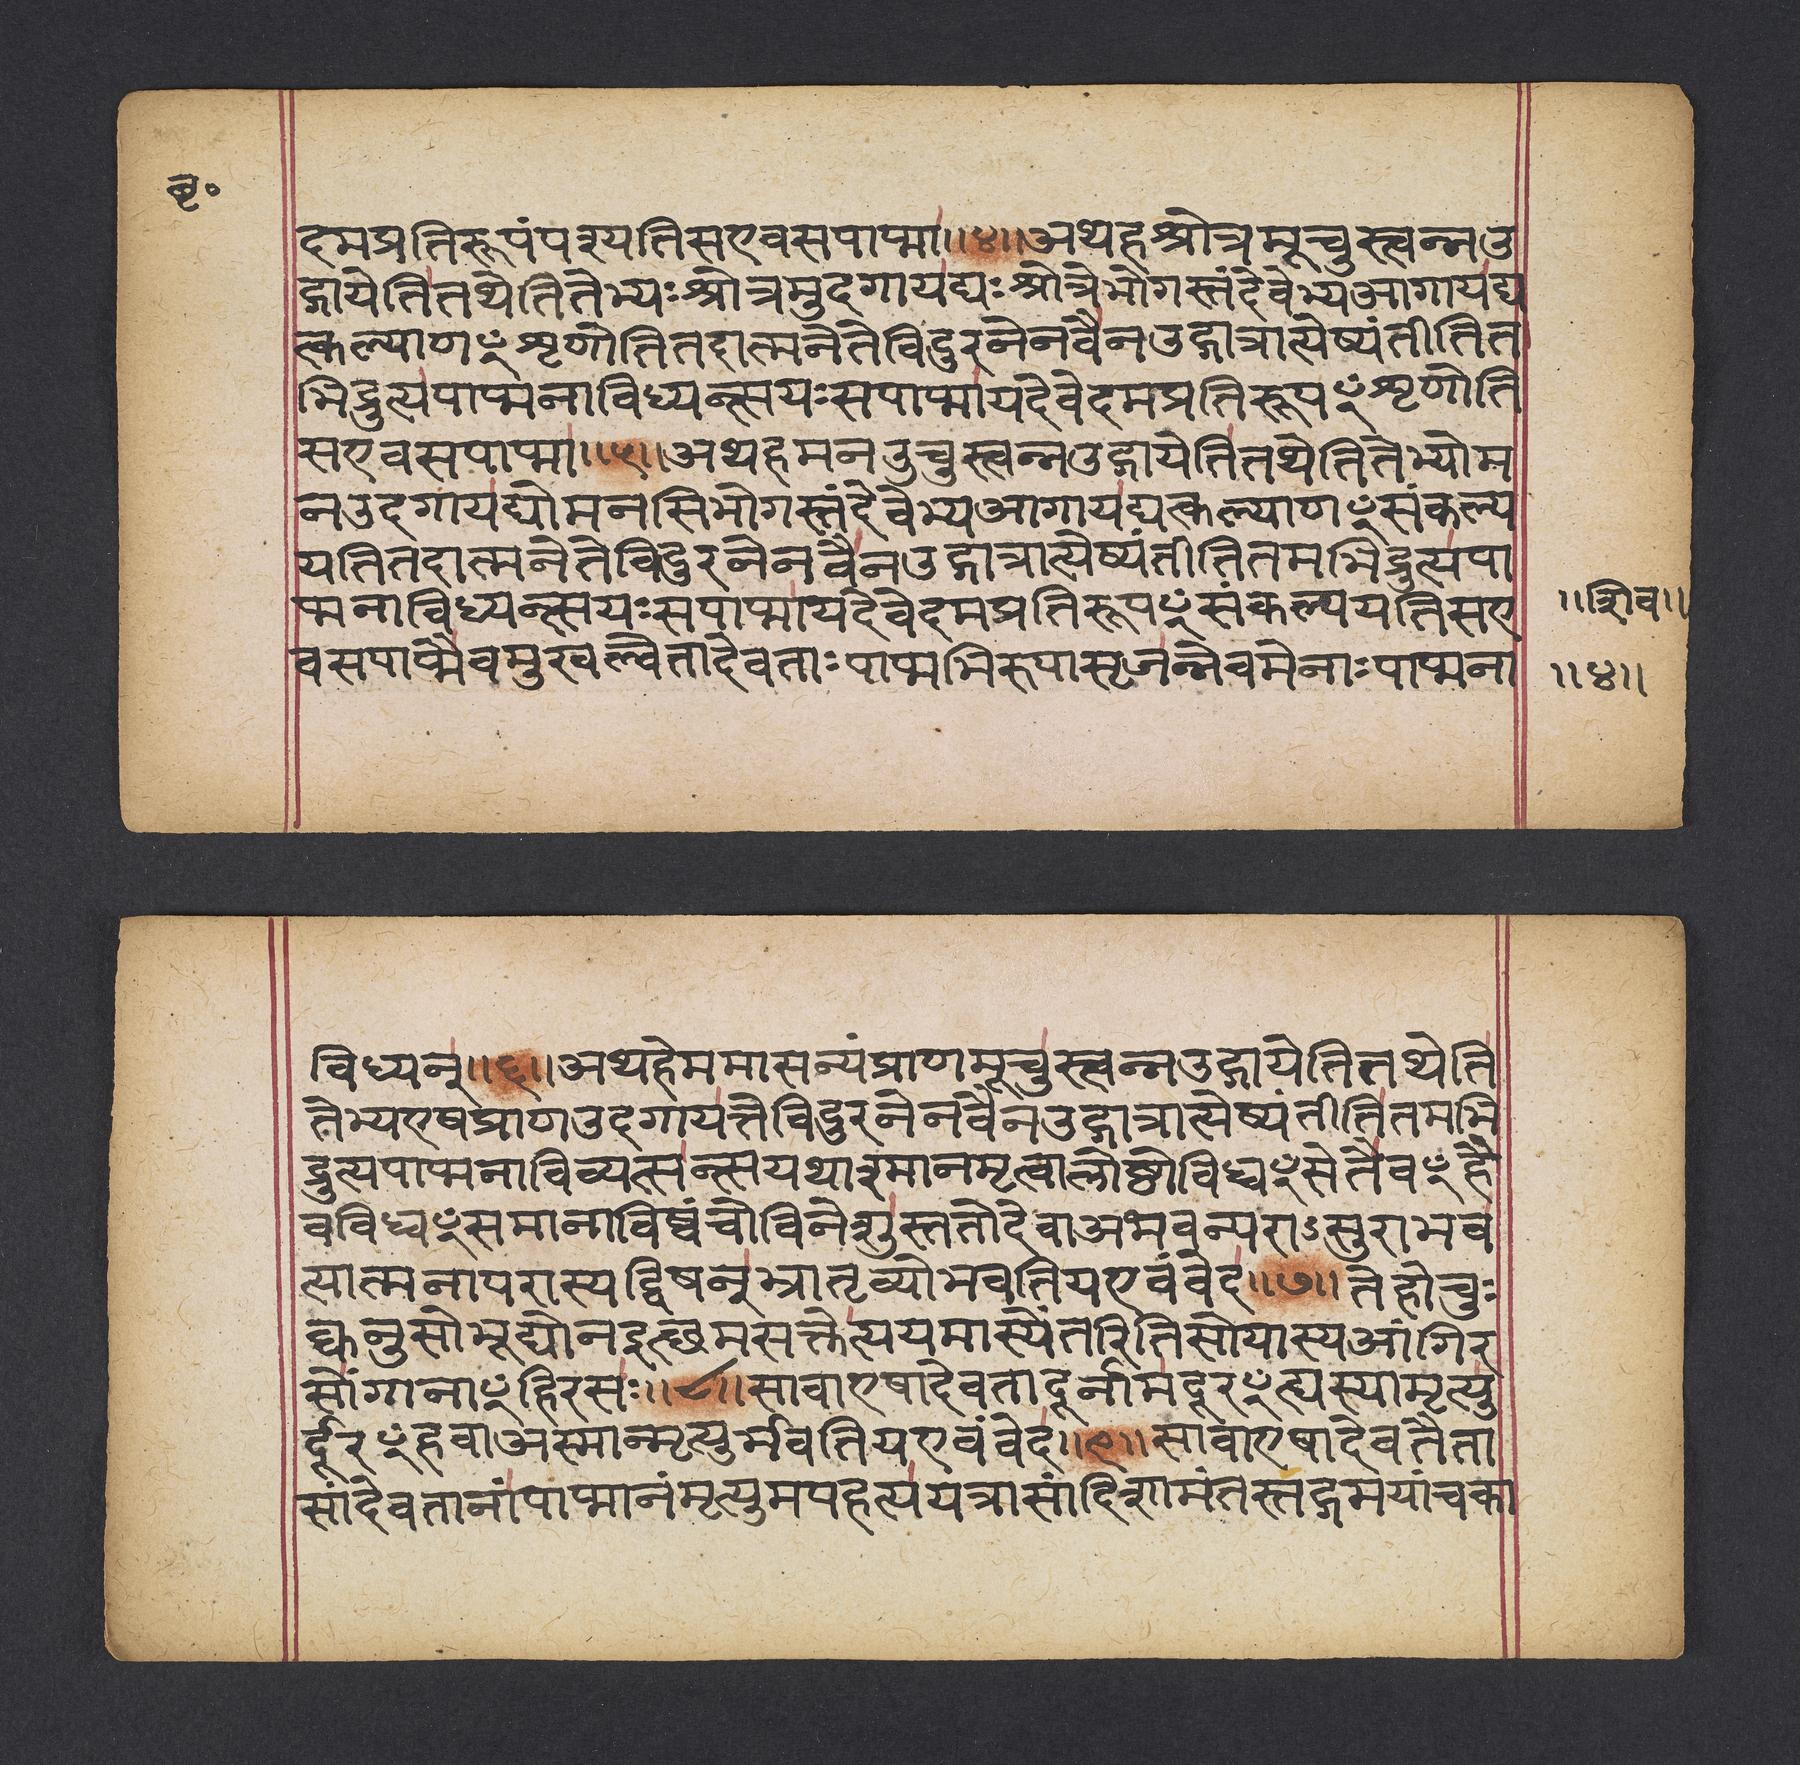 बृ०
दमप्रतिरूपंपश्यतिसएवसपाप्मा॥४॥अथहश्रोत्रमूचुस्त्वन्नउ
द्गायेतितथेतितेभ्यःश्रोत्रमुदगायद्यःश्रोत्रेभोगस्तंदेवेभ्यआगायद्य
त्कल्याणꣳशृणोतितदात्मनेतेविदुरनेनवैनउद्गात्रात्येष्यंतीतित
भिद्रुत्यपाप्मनाविध्यन्त्सयःसपाप्मायदेवेदमप्रतिरूपꣳशृणोति
सएवसपाप्मा॥५॥अथहमनउचुस्त्वन्नउद्गायेतितथेतितेभ्योम
नउदगायद्योमनसिभोगस्तंदेवेभ्यआगायद्यत्कल्याणꣳसंकल्प
यतितदात्मनेतेविदुरनेनवैनउद्गात्रात्येष्यंतीतितमभिद्रुत्यपा
प्मनाविध्यन्त्सयःसपाप्मायदेवेदमप्रतिरूपꣳसंकल्पयतिसए
॥शिव॥
वसपाप्मैवमुखल्वेतादेवताःपाप्मभिरुपासृजन्नेवमेनाःपाप्मना
॥४॥
विध्यन्॥६॥अथहेममासन्यंप्राणमूचुस्त्वन्नउद्गायेतितथेति
तेभ्यएषप्राणउदगायत्तेविदुरनेनवैनउद्गात्रात्येष्यंतीतितमभि
द्रुत्यपाप्मनाविव्यत्सन्त्सयथाश्मानमृत्वालोष्ठोविध्वꣳसेतैवꣳहै
वविध्वꣳसमानाविष्वंचोविनेशुस्ततोदेवाअभवन्पराऽसुराभव
त्यात्मनापरास्यद्विषन्भ्रातृव्योभवतियएवंवेद॥७॥तेहोचुः
क्वनुसोभूद्योनइत्थमसक्तेत्ययमास्येंतरितिसोयास्यआंगिर
सोंगानाꣳहिरसः॥८॥सावाएषादेवतादूर्नामदूरꣳह्यस्यामृत्यु
र्दूरꣳहवाअस्मान्मृत्युर्भवतियएवंवेद॥९॥सावाएषादेवतैता
सांदेवतानांपाप्मानंमृत्युमपहत्ययत्रासांदिशामंतस्तद्गमयांचका